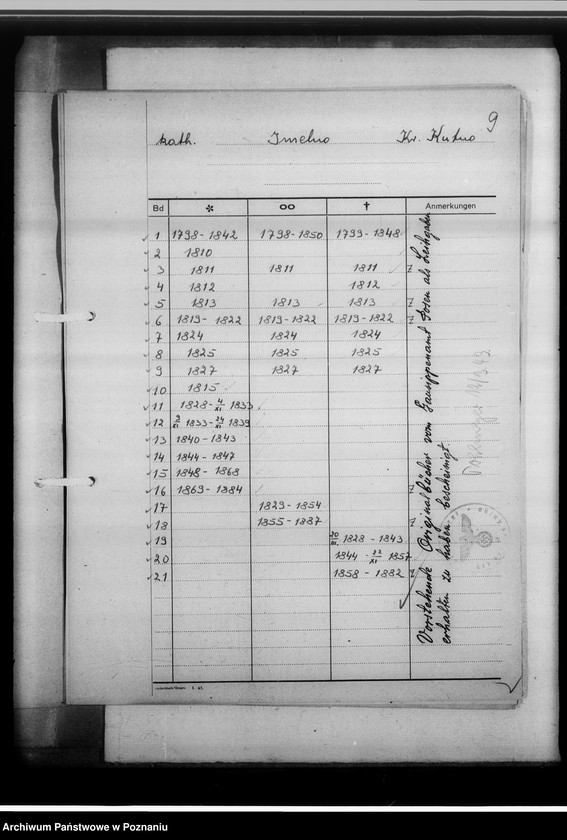 9
kath. Imelno Kr. Kutno
Bd * oo † Anmerkungen
1 1798-1842 1798-1850 1799-1848
2 1810
3 1811 1811 1811 Z
4 1812 1812
5 1813 1813 1813 Z
6 1819-1822 1819-1822 1819-1822 Z
7 1824 1824 1824
8 1825 1825 1825
9 1827 1827 1827
10 1815
11 1828-4/XI 1833
12 9/XI 1833-24/XI 1839
13 1840-1843
14 1844-1847
15 1848-1868
16 1869-1884 Z
17 1829-1854
18 1855-1887 Z
19 1828-1843
20 1844-22/XI 1857
21 1858-1882 Z
Vorstehende Originalbücher vom Gausippenamt Posen als Leihgabe
erhalten zu haben bescheinigt.
Archiwum Państwowe w Poznaniu